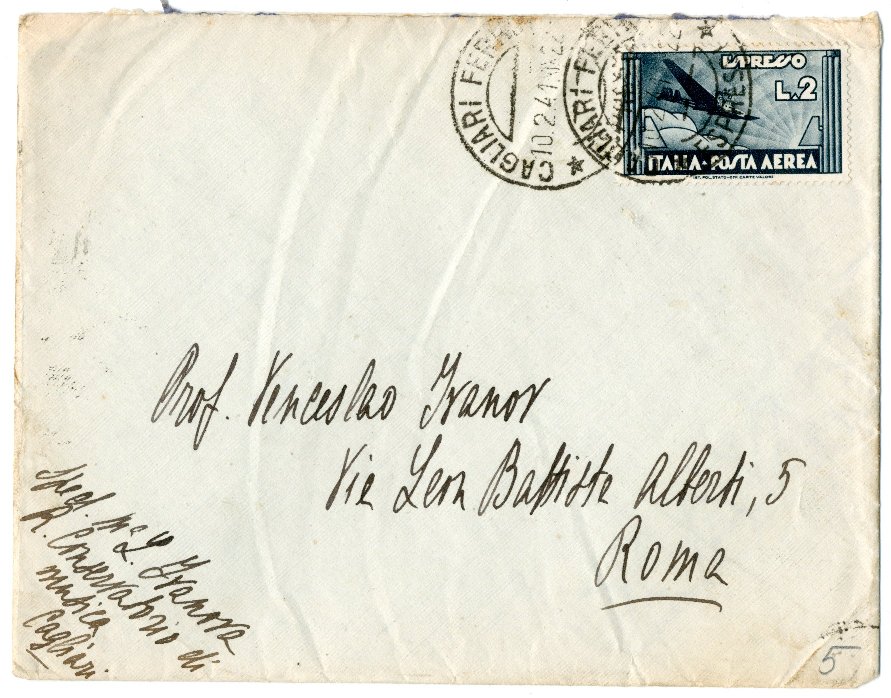 CAGLIARI FERR
10.2.41
ESPRESSO
L.2
ITALIA·POSTA AEREA
IST. POL. STATO-OFF. CARTE VALORI
Prof. Venceslao Ivanov
Via Leon Battista Alberti, 5
Roma
Sped. L. Ivanova
R. Conservatorio di
musica
Cagliari.
5